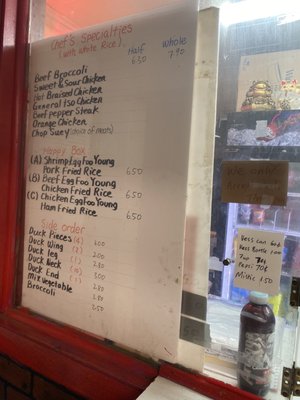 Chef's Specialties
(with white Rice)
Half Whole
6.50 7.90
Beef Broccoli
Sweet & Sour Chicken
Hot Braised Chicken
General Tso Chicken
Beef pepper Steak
Orange Chicken
Chop Suey (choice of meats)
Happy Box
(A) Shrimp Egg Foo Young
Pork Fried Rice 6.50
(B) Beef Egg Foo Young
Chicken Fried Rice 6.50
(C) Chicken Egg Foo Young
Ham Fried Rice 6.50
Side order
Duck Pieces (4) 200
Duck Wing (2) 200
Duck leg (1) 230
Duck Neck 300
Duck End 280
Mix Vegetable 280
Broccoli 250
We only
Pepsi 70¢
Mistic 1.50